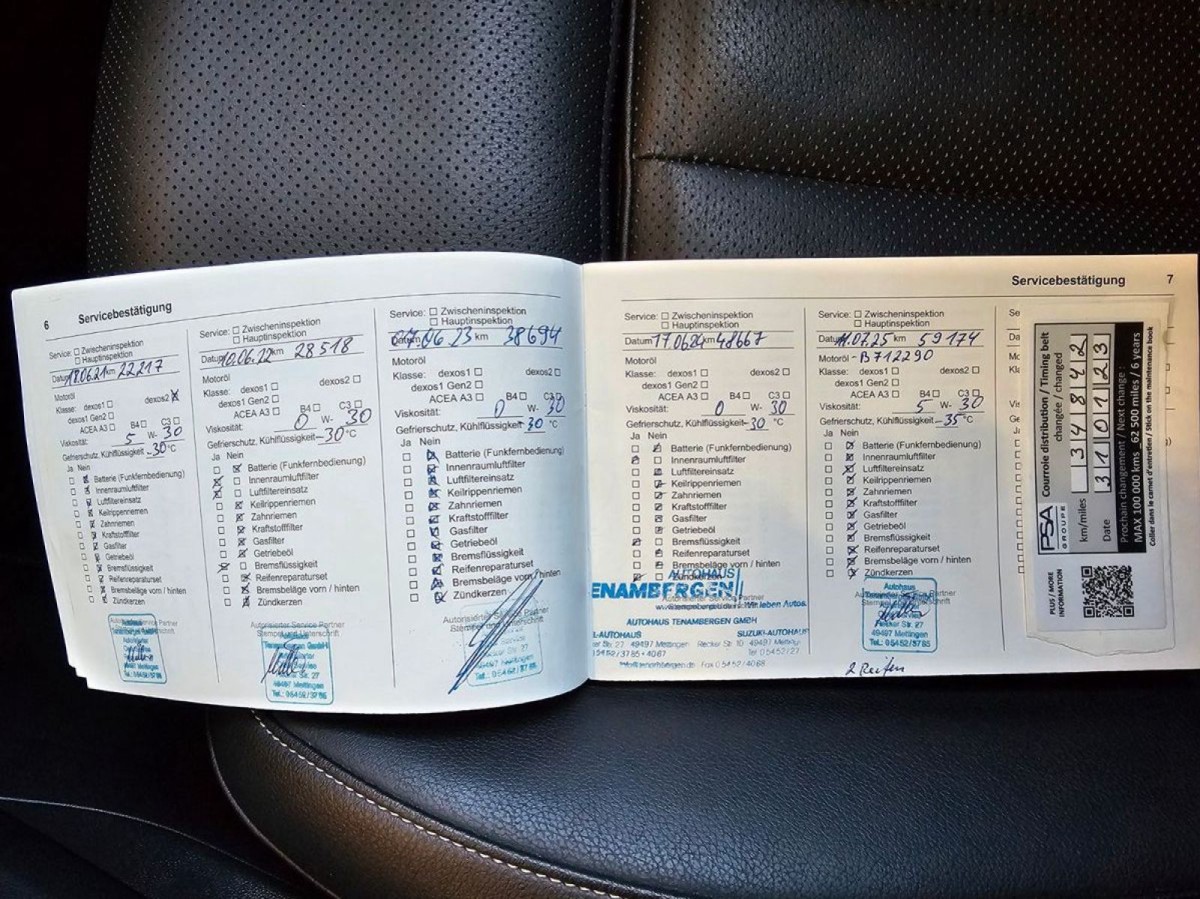 6 Servicebestätigung
Service: □ Zwischeninspektion
□ Hauptinspektion
Datum 18.06.21 km 22217
Motoröl
Klasse: dexos1 □ dexos2 ☒
dexos1 Gen2 □
ACEA A3 □ B4 □ C3 □
Viskosität: 5 W- 30
Gefrierschutz, Kühlflüssigkeit -30 °C
Ja Nein
Batterie (Funkfernbedienung)
Innenraumluftfilter
Luftfiltereinsatz
Keilrippenriemen
Zahnriemen
Kraftstofffilter
Gasfilter
Getriebeöl
Bremsflüssigkeit
Reifenreparaturset
Bremsbeläge vorn / hinten
Zündkerzen
Service: □ Zwischeninspektion
□ Hauptinspektion
Datum 10.06.22 km 28518
Motoröl
Klasse: dexos1 □ dexos2 □
dexos1 Gen2 □
ACEA A3 □ B4 □ C3 □
Viskosität: 0 W- 30
Gefrierschutz, Kühlflüssigkeit -30 °C
Ja Nein
Batterie (Funkfernbedienung)
Innenraumluftfilter
Luftfiltereinsatz
Keilrippenriemen
Zahnriemen
Kraftstofffilter
Gasfilter
Getriebeöl
Bremsflüssigkeit
Reifenreparaturset
Bremsbeläge vorn / hinten
Zündkerzen
Autorisierter Service Partner
49497 Mettingen
Tel.: 05452/3785
Service: □ Zwischeninspektion
□ Hauptinspektion
Datum 07.06 23 km 38694
Motoröl
Klasse: dexos1 □ dexos2 □
dexos1 Gen2 □
ACEA A3 □ B4 □ C3 □
Viskosität: 0 W- 30
Gefrierschutz, Kühlflüssigkeit -30 °C
Ja Nein
Batterie (Funkfernbedienung)
Innenraumluftfilter
Luftfiltereinsatz
Keilrippenriemen
Zahnriemen
Kraftstofffilter
Gasfilter
Getriebeöl
Bremsflüssigkeit
Reifenreparaturset
Bremsbeläge vorn / hinten
Zündkerzen
Autorisierter Service Partner
49497 Mettingen
Tel.: 05452/3785
Servicebestätigung 7
Service: □ Zwischeninspektion
□ Hauptinspektion
Datum 17.06.24 km 48667
Motoröl
Klasse: dexos1 □ dexos2 □
dexos1 Gen2 □
ACEA A3 □ B4 □ C3 □
Viskosität: 0 W- 30
Gefrierschutz, Kühlflüssigkeit -30 °C
Ja Nein
Batterie (Funkfernbedienung)
Innenraumluftfilter
Luftfiltereinsatz
Keilrippenriemen
Zahnriemen
Kraftstofffilter
Gasfilter
Getriebeöl
Bremsflüssigkeit
Reifenreparaturset
Bremsbeläge vorn / hinten
Zündkerzen
AUTOHAUS
TENAMBERGEN
Wir leben Autos.
AUTOHAUS TENAMBERGEN GMBH
-AUTOHAUS SUZUKI-AUTOHAUS
27 · 49497 Mettingen Recker Str. 10 · 49497 Mettingen
05452/3785 + 4067 Tel 05452/
Fax 05452/4068
Service: □ Zwischeninspektion
□ Hauptinspektion
Datum 11.07.25 km 59174
Motoröl - B712290
Klasse: dexos1 □ dexos2 □
dexos1 Gen2 □
ACEA A3 □ B4 □ C3 □
Viskosität: 5 W- 30
Gefrierschutz, Kühlflüssigkeit -35 °C
Ja Nein
Batterie (Funkfernbedienung)
Innenraumluftfilter
Luftfiltereinsatz
Keilrippenriemen
Zahnriemen
Kraftstofffilter
Gasfilter
Getriebeöl
Bremsflüssigkeit
Reifenreparaturset
Bremsbeläge vorn / hinten
Zündkerzen
Autohaus
Recker Str. 27
49497 Mettingen
Tel.: 05452/3785
2 Reifen
PSA
GROUPE
Courroie distribution / Timing belt
changée / changed
km/miles 34842
Date 310123
Prochain changement / Next change :
MAX 100 000 kms 62 500 miles / 6 years
Coller dans le carnet d'entretien / Stick on the maintenance book
PLUS / MORE
INFORMATION